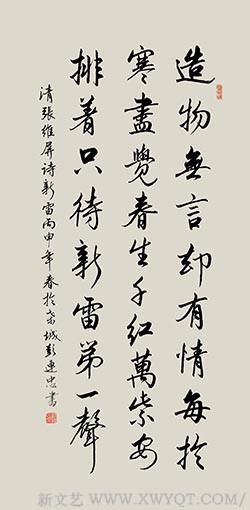 造物無言却有情每於
寒盡覺春生千紅萬紫安
排着只待新雷第一聲
清張維屏詩新雷丙申年春於棗城彭連忠書
新文艺 WWW.XWYQT.COM/